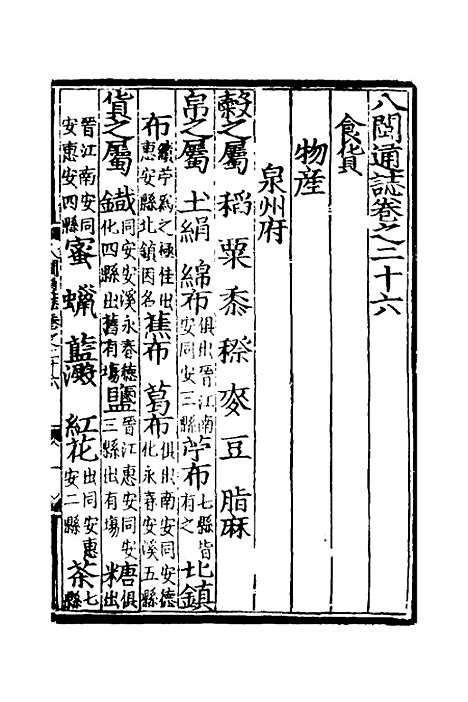 八閩通誌卷之二十六
食貨
物産
泉州府
穀之屬 稻 粟 黍 稷 麥 豆 脂麻
帛之屬 土絹 綿布俱出晉江南安同安三縣 苧布七縣皆有之 北鎮
布績苧為之極佳出惠安縣北鎮因名 蕉布 葛布俱出南安同安德化永春安溪五縣
貨之屬 鐵同安安溪永春德化四縣出 舊有場 鹽晉江惠安同安三縣出有場 糖俱出
晉江南安同安惠安四縣 蜜 蠟 藍澱 紅花出同安惠安二縣 茶七縣
八閩通誌卷之二十六 一